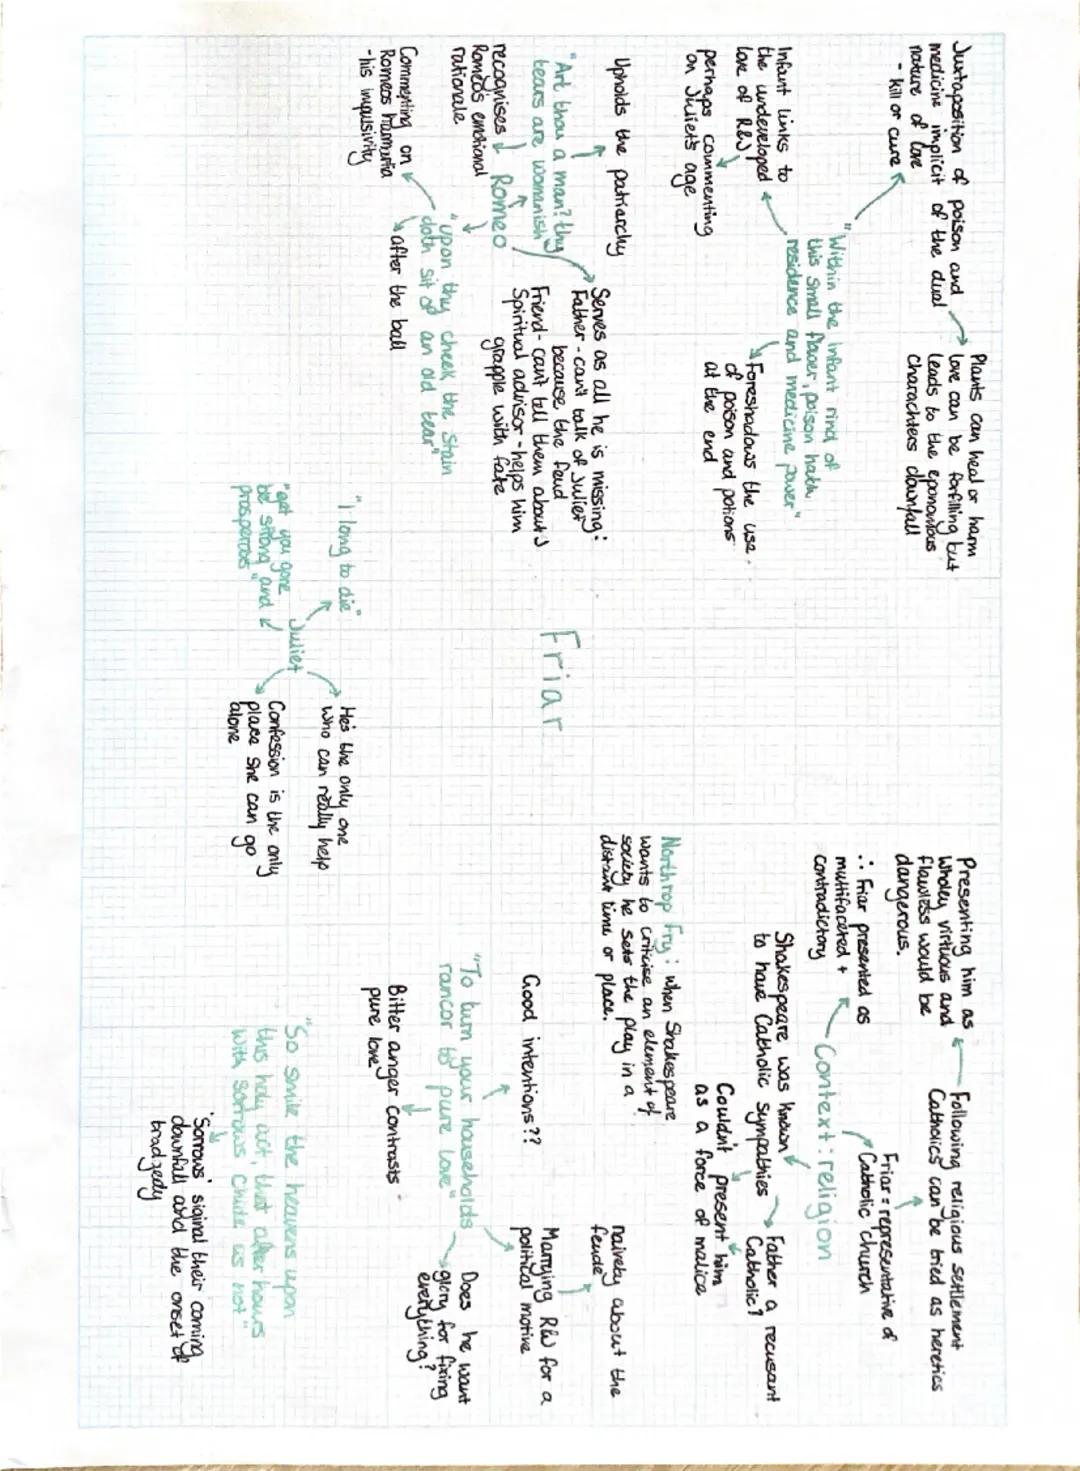 Juxtaposition of poison and
medicine implicit of the dual
nature of love
- kill or cure
Plants can heal or harm
love can be forfilling but
leads to the eponomous
charachters downfall
"Within the infant rind of
this small flower, poison hath
residence and medicine power"
Infant links to
the undeveloped
love of R&J
perhaps commenting
on Juliet's age
Foreshadows the use
of poison and potions
at the end
Upholds the patriarchy
"Art thou a man? thy
tears are womanish
Serves as all he is missing:
Father - can't talk of Juliet
because the feud
Friend - can't tell them about J
Spiritual advisor - helps him
grapple with fate
Romeo
recognises
Romeo's emotional
rationale
"upon thy cheek the stain
doth sit of an old tear"
Commenting on
Romeos hamartia
- his impulsivity
after the ball
Friar
"I long to die"
Juliet
"get you gone
be strong and
prosperous"
He's the only one
who can really help
Confession is the only
place she can go
alone
Presenting him as
wholey virtuous and
flawless would be
dangerous.
∴ Friar presented as
multifaceted +
contradictory
Following religious settlement
Catholics can be tried as heretics
Friar = representative of
Catholic church
Context: religion
Shakespeare was known
to have Catholic sympathies
Father a recusant
Catholic?
Couldn't present him
as a force of malice
Northrop Fry: when Shakespeare
wants to criticise an element of
society he sets the play in a
distant time or place.
naivety about the
feude
Good intentions??
Marrying R&J for a
political motive
"To turn your households
rancor to pure love"
Does he want
glory for fixing
everything?
Bitter anger contrasts
pure love
"So smile the heavens upon
this holy act, that after hours
with sorrows chide us not"
'Sorrows' siginal their coming
downfall and the onset of
tradgedy